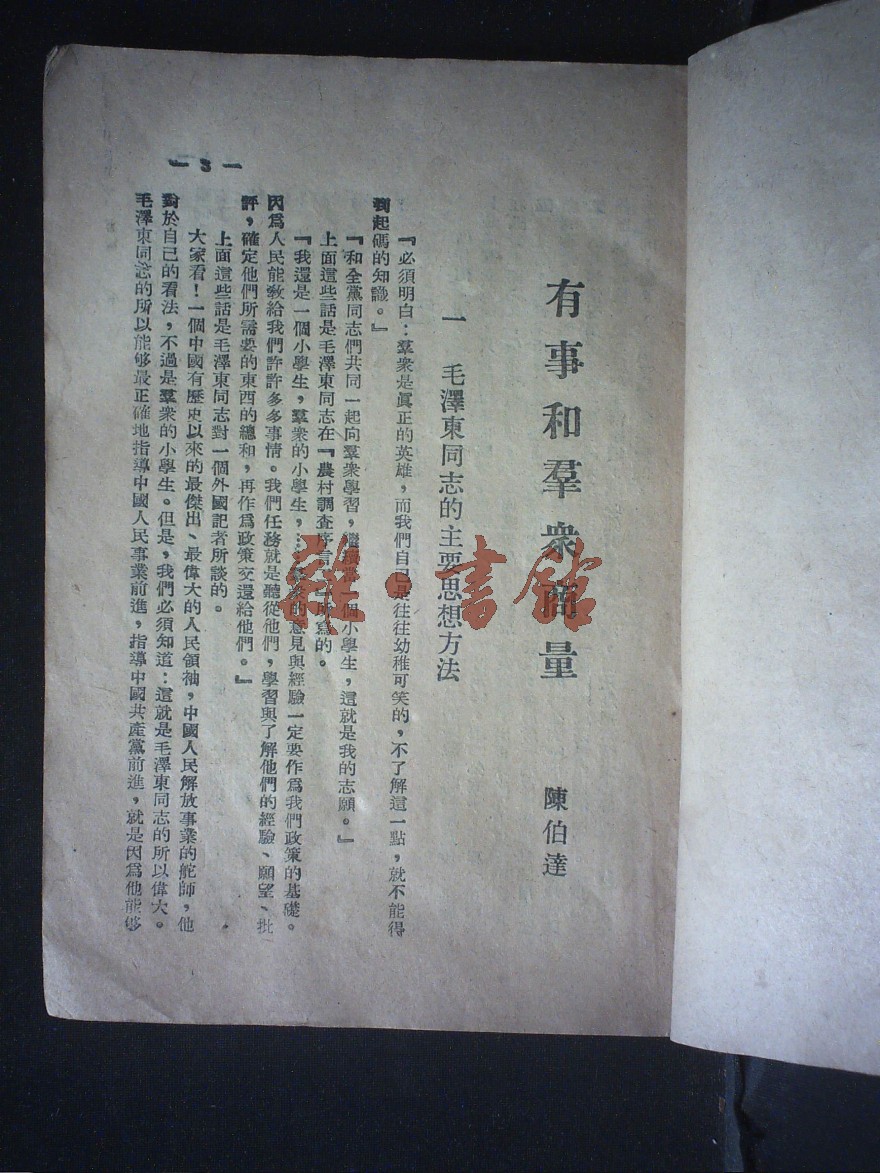 有事和羣衆商量
陳伯達
一 毛澤東同志的主要思想方法
『必須明白：羣衆是眞正的英雄，而我們自己是往往幼稚可笑的，不了解這一點，就不能得
到起碼的知識。』
『和全黨同志們共同一起向羣衆學習，繼續 個小學生，這就是我的志願。』
上面這些話是毛澤東同志在『農村調查序言 所寫的。
『我還是一個小學生，羣衆的小學生， 羣衆的意見與經驗一定要作爲我們政策的基礎。
因爲人民能敎給我們許許多多事情。我們任務就是聽從他們，學習與了解他們的經驗、願望、批
評，確定他們所需要的東西的總和，再作爲政策交還給他們。』
上面這些話是毛澤東同志對一個外國記者所談的。
大家看！一個中國有歷史以來的最傑出、最偉大的人民領袖，中國人民解放事業的舵師，他
對於自己的看法，不過是羣衆的小學生。但是，我們必須知道：這就是毛澤東同志的所以偉大。
毛澤東同志的所以能够最正確地指導中國人民事業前進，指導中國共產黨前進，就是因爲他能够
— 3 —
雜·書館